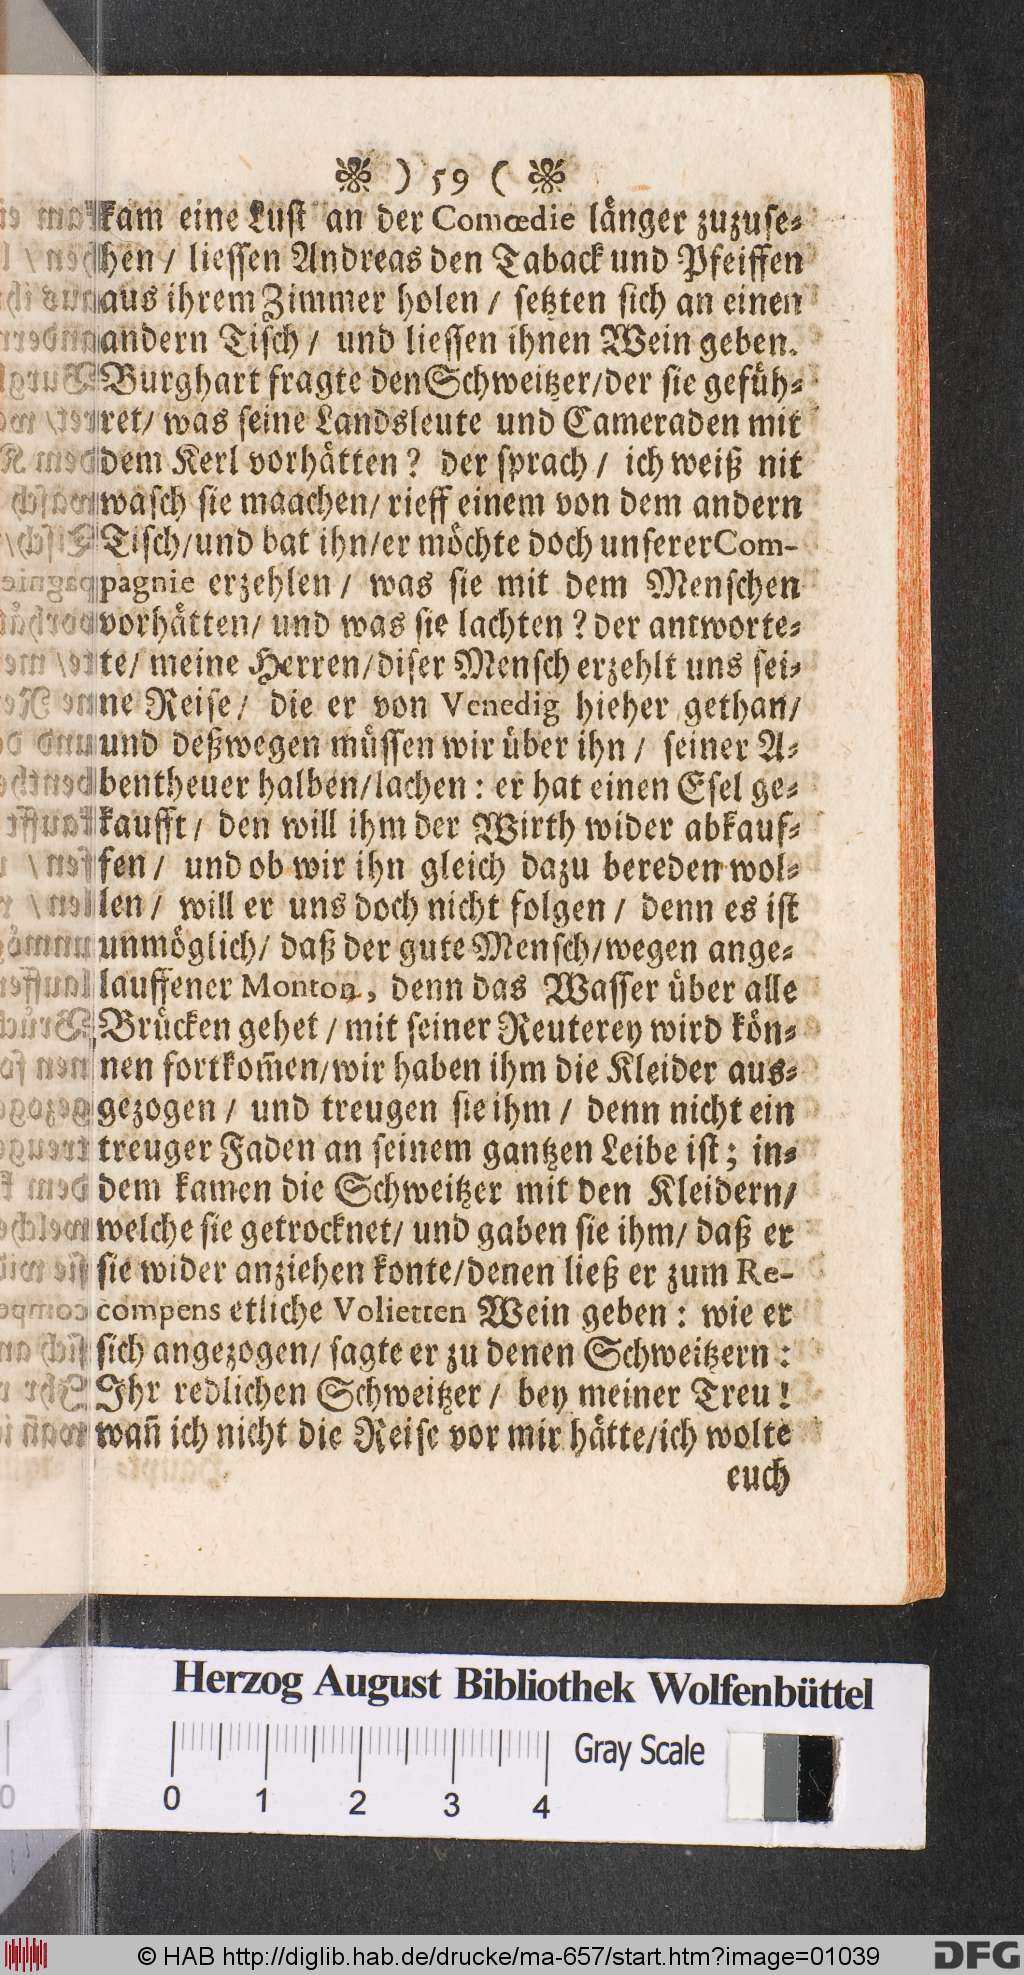 ) 59 (
kam eine Lust an der Comœdie länger zuzuse-
hen / liessen Andreas den Taback und Pfeiffen
aus ihrem Zimmer holen / setzten sich an einen
andern Tisch / und liessen ihnen Wein geben.
Burghart fragte den Schweitzer/der sie gefüh-
ret/ was seine Landsleute und Cameraden mit
dem Kerl vorhätten? der sprach / ich weiß nit
wasch sie maachen/ rieff einem von dem andern
Tisch/und bat ihn/er möchte doch unserer Com-
pagnie erzehlen / was sie mit dem Menschen
vorhätten/ und was sie lachten? der antworte-
te/ meine Herren/diser Mensch erzehlt uns sei-
ne Reise/ die er von Venedig hieher gethan/
und deßwegen müssen wir über ihn / seiner A-
bentheuer halben/lachen: er hat einen Esel ge-
kaufft/ den will ihm der Wirth wider abkauf-
fen / und ob wir ihn gleich dazu bereden wol-
len / will er uns doch nicht folgen / denn es ist
unmöglich/ daß der gute Mensch/wegen ange-
lauffener Monton, denn das Wasser über alle
Brücken gehet / mit seiner Reuterey wird kön-
nen fortkom̄en/wir haben ihm die Kleider aus-
gezogen / und treugen sie ihm / denn nicht ein
treuger Faden an seinem gantzen Leibe ist; in-
dem kamen die Schweitzer mit den Kleidern/
welche sie getrocknet/ und gaben sie ihm/ daß er
sie wider anziehen konte/denen ließ er zum Re-
compens etliche Volietten Wein geben: wie er
sich angezogen/ sagte er zu denen Schweitzern:
Ihr redlichen Schweitzer / bey meiner Treu!
wan̄ ich nicht die Reise vor mir hätte/ich wolte
euch
Herzog August Bibliothek Wolfenbüttel
Gray Scale
0 1 2 3 4
© HAB http://diglib.hab.de/drucke/ma-657/start.htm?image=01039
DFG